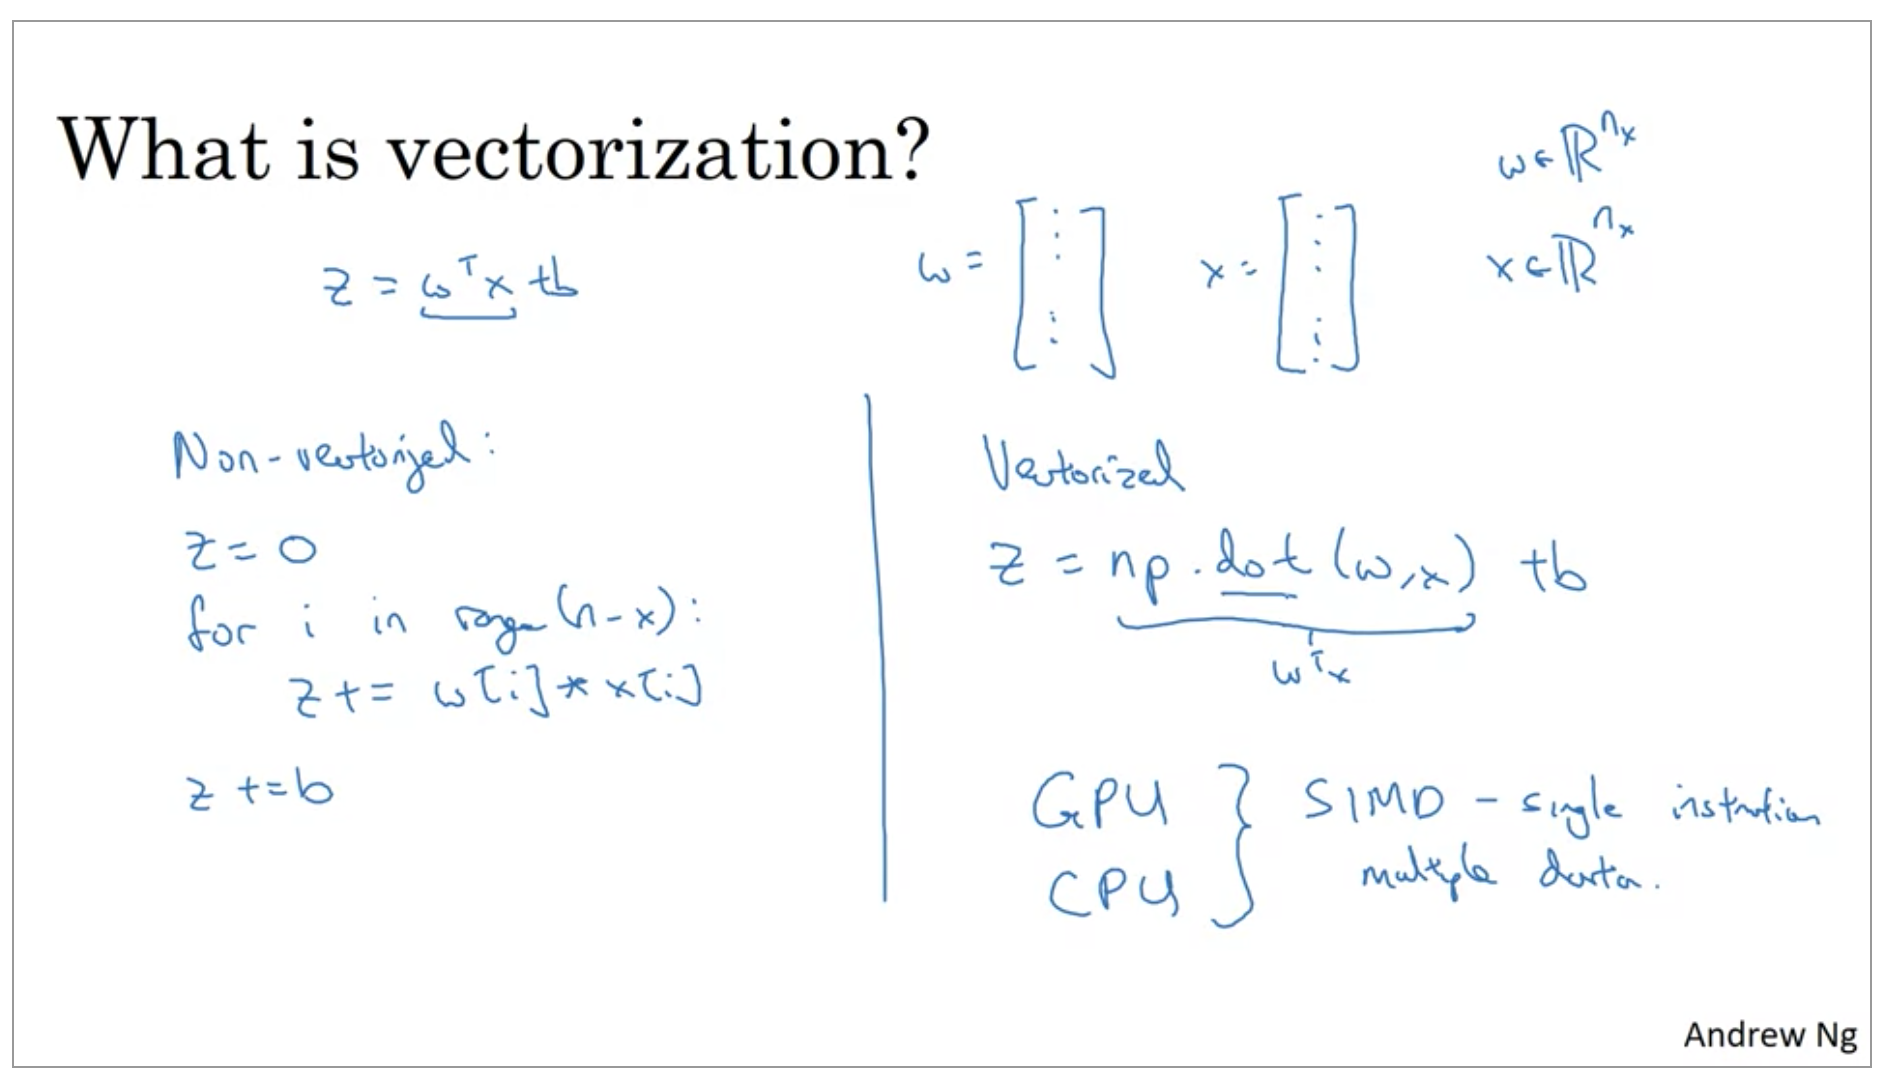 What is vectorization?
z = wᵀx + b
w = [⋮ ⋮]
x = [⋮ ⋮]
w ∈ ℝⁿˣ
x ∈ ℝⁿˣ
Non-vectorized:
z = 0
for i in range(n-x):
z += w[i] * x[i]
z += b
Vectorized
z = np.dot(w,x) + b
wᵀx
GPU
CPU
} SIMD - single instruction
multiple data.
Andrew Ng